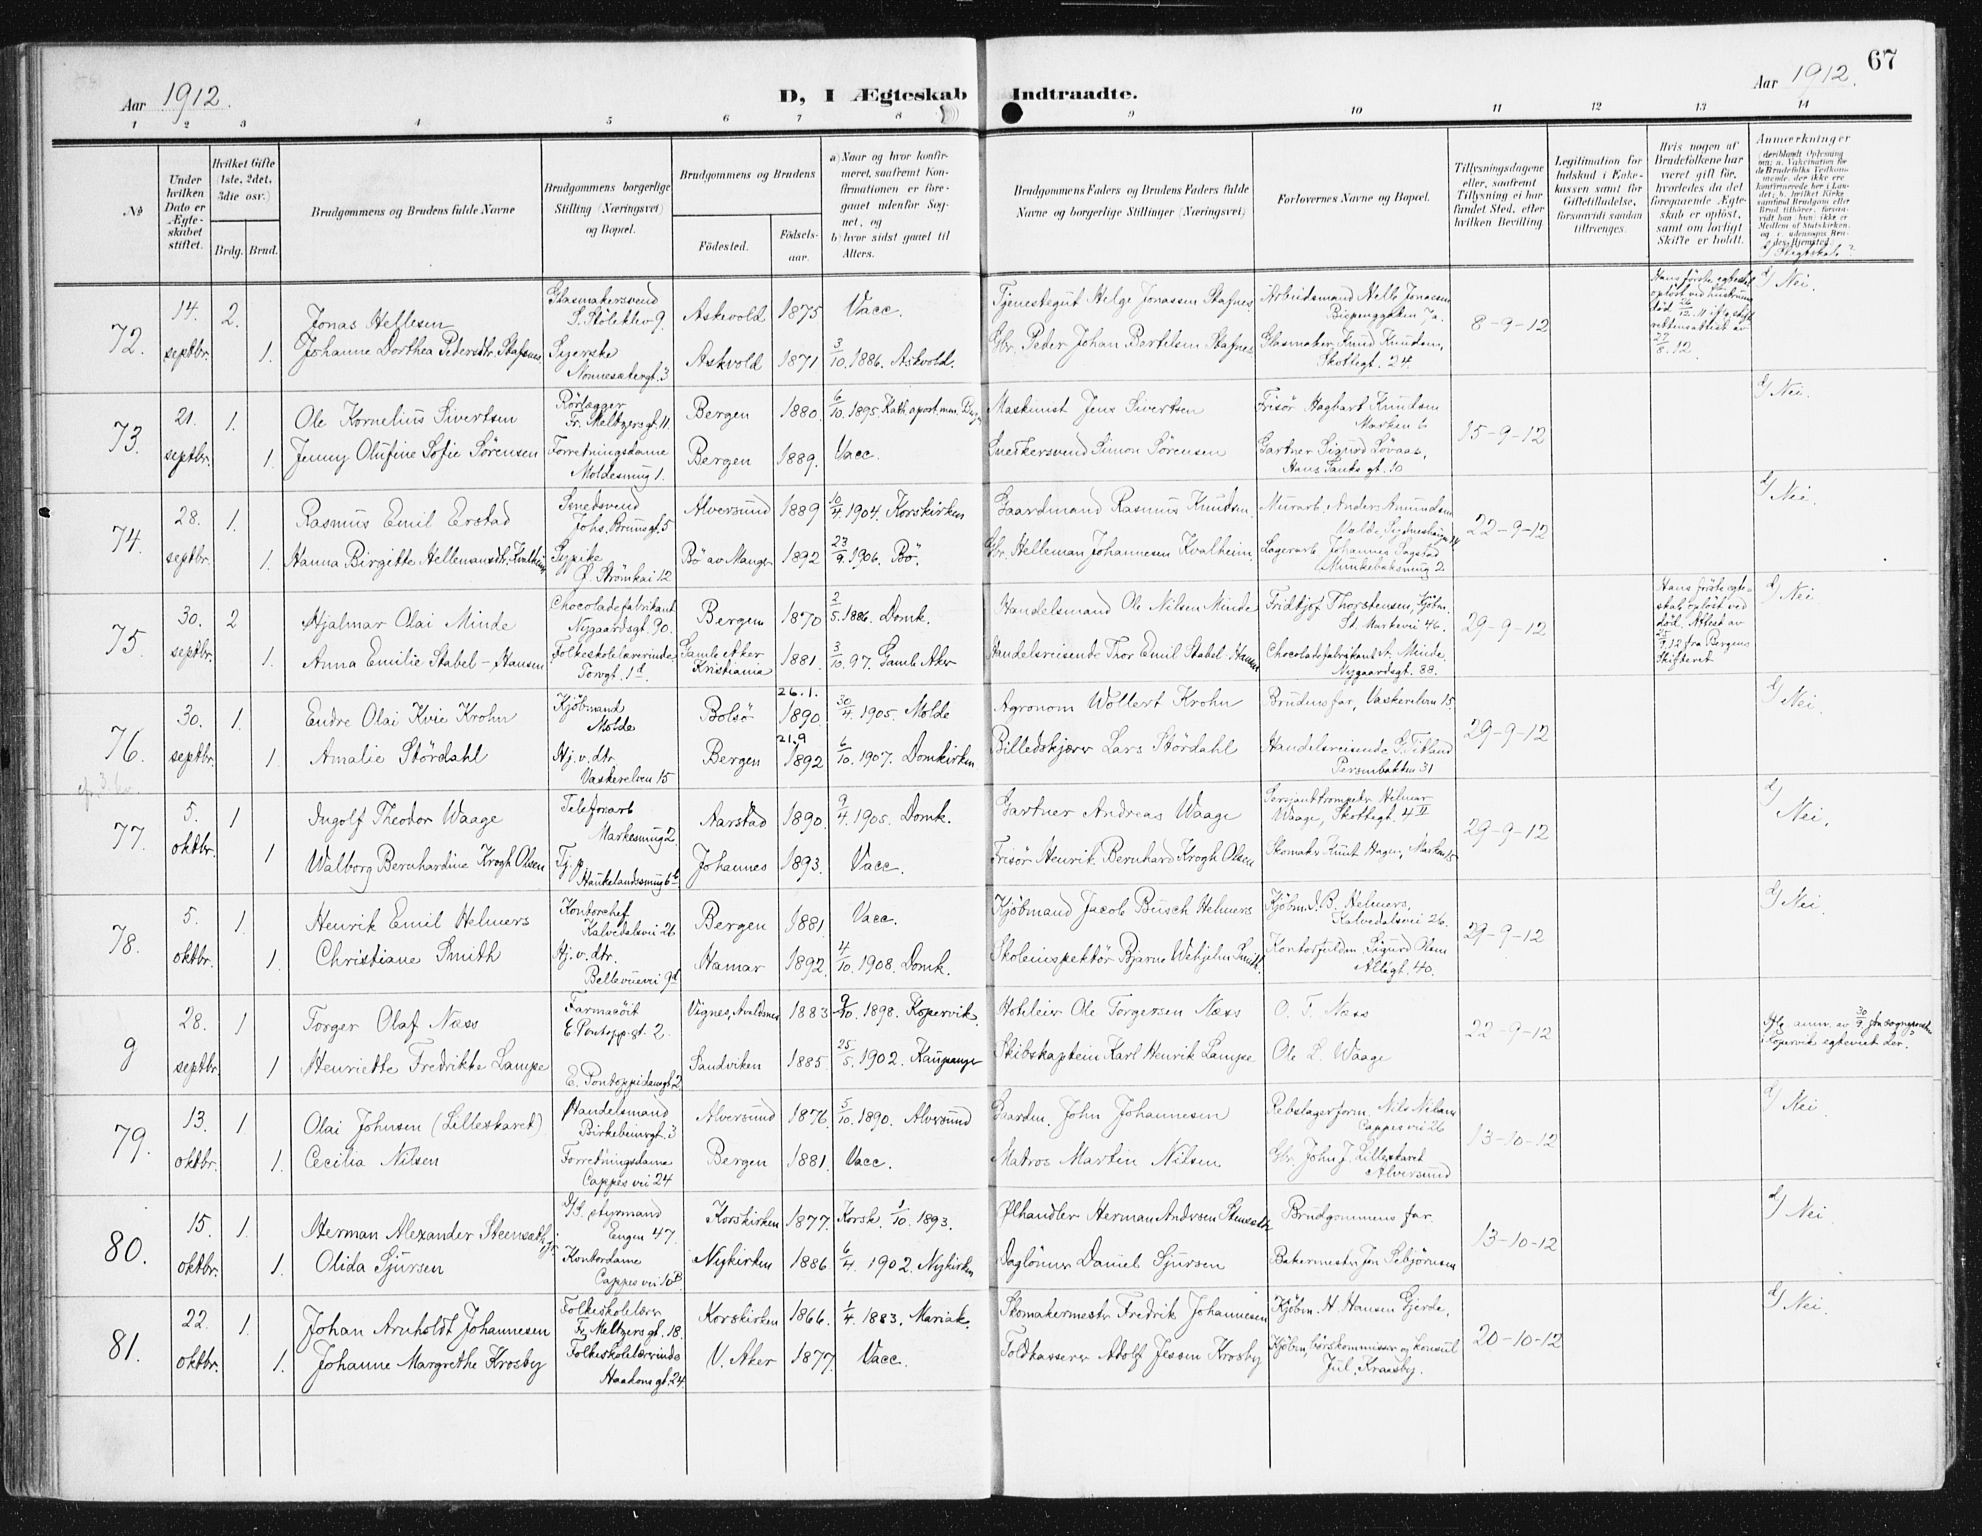 67
Aar 1912.
D, I Ægteskab Indtraadte.
Aar 1912.
1 2 3 4 5 6 7 8 9 10 11 12 13 14
No
Under hvilken Dato er Ægteskabet stiftet.
Hvilket Gifte (1ste, 2det, 3die osv.)
Brdg. Brud.
Brudgommens og Brudens fulde Navne
Brudgommens borgerlige Stilling (Næringsvei) og Bopæl.
Brudgommens og Brudens
Födested. Födselsaar.
a) Naar og hvor konfirmeret, saafremt Konfirmationen er foregaaet udenfor Sognet, og
b) hvor sidst gaaet til Alters.
Brudgommens Faders og Brudens Faders fulde Navne og borgerlige Stillinger (Næringsvei)
Forlovernes Navne og Bopæl.
Tillysningsdagene eller, saafremt Tillysning ei har fundet Sted, efter hvilken Bevilling
Legitimation for Indskud i Enkekassen samt for Giftetilladelse, forsaavidt saadan tiltrænges.
Hvis nogen af Brudefolkene har været gift för, hvorledes da det foregaaende Ægteskab er oplöst, samt om lovligt Skifte er holdt.
Anmærkninger
72. 14. septbr. 2. Jonas Hellesen Glasmakersvend S. Stöletklev 9. Askevold 1875 Vacc. Tjenestegut Helge Jonassen Stafnes Arbeidsmand Hell. Jonassen Bispenggaten 7a. 8-9-12 Nei.
1. Johanne Dorthea Pedersdtr. Stafsnes Syerske Nonnesætergt. 3 Askvold 1871 3/10. 1886. Askvold. Gbr. Peder Johan Bertelsen Stafnes Glasmaker Knud Knudsen, Skottegt. 24.
73. 21. septbr. 1. Ole Kornelius Sivertsen Rörlægger Fr. Meltzersgt. 11. Bergen 1880 6/10. 1895. Kath. apost. men. Maskinist Jens Sivertsen Frisör Hagbart Knudsen Marken 6 15-9-12 Nei.
1. Jenny Olufine Sofie Sörensen Forretningsdame Moldesmug 1. Bergen 1889. Vacc. Snedkersvend Simon Sörensen Gartner Sigurd Lövaas, Hans Tanks gt. 10
74. 28. septbr. 1. Rasmus Emil Erstad Smedsvend Johs. Brunsgt. 5 Alversund 1889 10/4. 1904. Korskirken Gaardmand Rasmus Knudsen Murarb. Anders Amundsen 22-9-12 Nei.
1. Hanna Birgitte Hellemansdtr. Kvalheim Sypike Ø. Strömkai 12 Bö av Manger 1892 23/9. 1906. Bö. Gbr. Helleman Johannesen Kvalheim Lagerarb. Johannes Sagstad Munkebaksmug 2.
75. 30. septbr. 2 Hjalmar Olai Minde Chocoladefabrikant Nygaardsgt. 90. Bergen 1870 2/5. 1886. Domk. Handelsmand Ole Nilsen Minde Fridtjof Thorstensen, Kjöbm. St. Markevei 46. 29-9-12 Hans förste ægteskab oplöst ved död. Attest av 25/9. 12 fra Bergens Skifteret Nei
1. Anna Emilie Stabel-Hansen Folkeskolelærerinde Torvgt. 1d. Gamle Aker Kristiania 1881. 3/10. 97. Gamle Aker Handelsreisende Thor Emil Stabel Hansen Chocoladefabrikant A. Minde, Nygaardsgt. 88.
76. 30. septbr. 1. Endre Olai Kvie Krohn Kjöbmand Molde Bolsö 26.1. 1890. 30/4. 1905. Molde Agronom Wollert Krohn Brudens far, Vaskerelven 15. 29-9-12 Nei.
1. Amalie Stördahl Hj. v. dtr. Vaskerelven 15 Bergen 21.9 1892 6/10. 1907. Domkirken Billedskjærer Lars Stördahl Handelsreisende G. Titland Persenbakken 31
77. 5. oktbr. 1 Ingolf Theodor Waage Telefonarb Markesmug 2. Aarstad 1890. 9/4. 1905. Domk. Gartner Andreas Waage Sersjanttrompeter Helmer Waage, Skottegt. 4 II 29-9-12 Nei.
1 Walborg Bernhardine Krogh Olsen Tj. p. Haukelandssmug 6b Johannes 1893. Vacc. Frisör Henrik Bernhard Krogh Olsen Skomaker Knut Hagen, Marken 15
78. 5. oktbr. 1. Henrik Emil Helmers Kontorchef Kalvedalsvei 26 Bergen 1881 Vacc. Kjöbmand Jacob Busch Helmers Kjöbm. J. B. Helmers, Kalvedalsvei 26. 29-9-12 Nei.
1. Christiane Smith Hj. v. dtr. Bellevuevei 9d. Hamar 1892 4/10. 1908. Domk. Skoleinspektör Bjarne Wehjelm Smith Kontorfuldm. Sigurd Olsen Allégt. 40.
g 28. septbr 1 Torger Olaf Næss Farmacöit E. Pontopp.gt. 2. Vignes, Avaldsnes 1883 9/10. 1898. Kopervik. Hotleier Ole Torgersen Næss O. T. Næss 22-9-12 Ifg. anm. av 30/9 fra sognepresten i Kopervik egteviet der.
1 Henriette Fredrikke Lampe E. Pontoppidansgt. 2 Sandviken 1885. 25/5. 1902. Kaupanger Skibskaptein Karl Henrik Lampe Ole L. Waage
79. 13. oktbr. 1 Olai Johnsen (Lilleskaret) Handelsmand Birkebeinergt. 3 Alversund 1876 5/10. 1890. Alversund Gaardm. John Johannesen Rebslagerform. Nils Nilsen Cappes vei 26 13-10-12 Nei.
1. Cecilia Nilsen Forretningsdame Cappes vei 24 Bergen 1881. Vacc. Matros Martin Nilsen Gbr. John J. Lilleskaret Alversund
80. 15. oktbr. 1 Herman Alexander Steensæth jr. D/S. styrmand Engen 47. Korskirken 1877. Korsk. 1/10. 1893. Ølhandler Herman Andersen Steensæth Brudgommens far. 13-10-12 Nei.
1. Olida Sjursen Kontordame Cappes vei 10B Nykirken 1886 6/4. 1902. Nykirken Daglönner Daniel Sjursen Bakermester Jen Sebjörnsen
81. 22. oktbr. 1. Johan Arnholdt Johannesen Folkeskolelærer Fr. Meltzers gt. 18. Korskirken 1866. 1/4. 1883. Mariak. Skomakermester Fredrik Johannesen Kjöbm. H. Hansen Gjerde, 20-10-12 Nei.
1. Johanne Margrethe Krosby Folkeskolelærerinde Haakons gt. 24. V. Aker 1877. Vacc. Toldkasserer Adolf Jessen Krosby Kjöbm, börskommissær og konsul Jul. Kraasby.